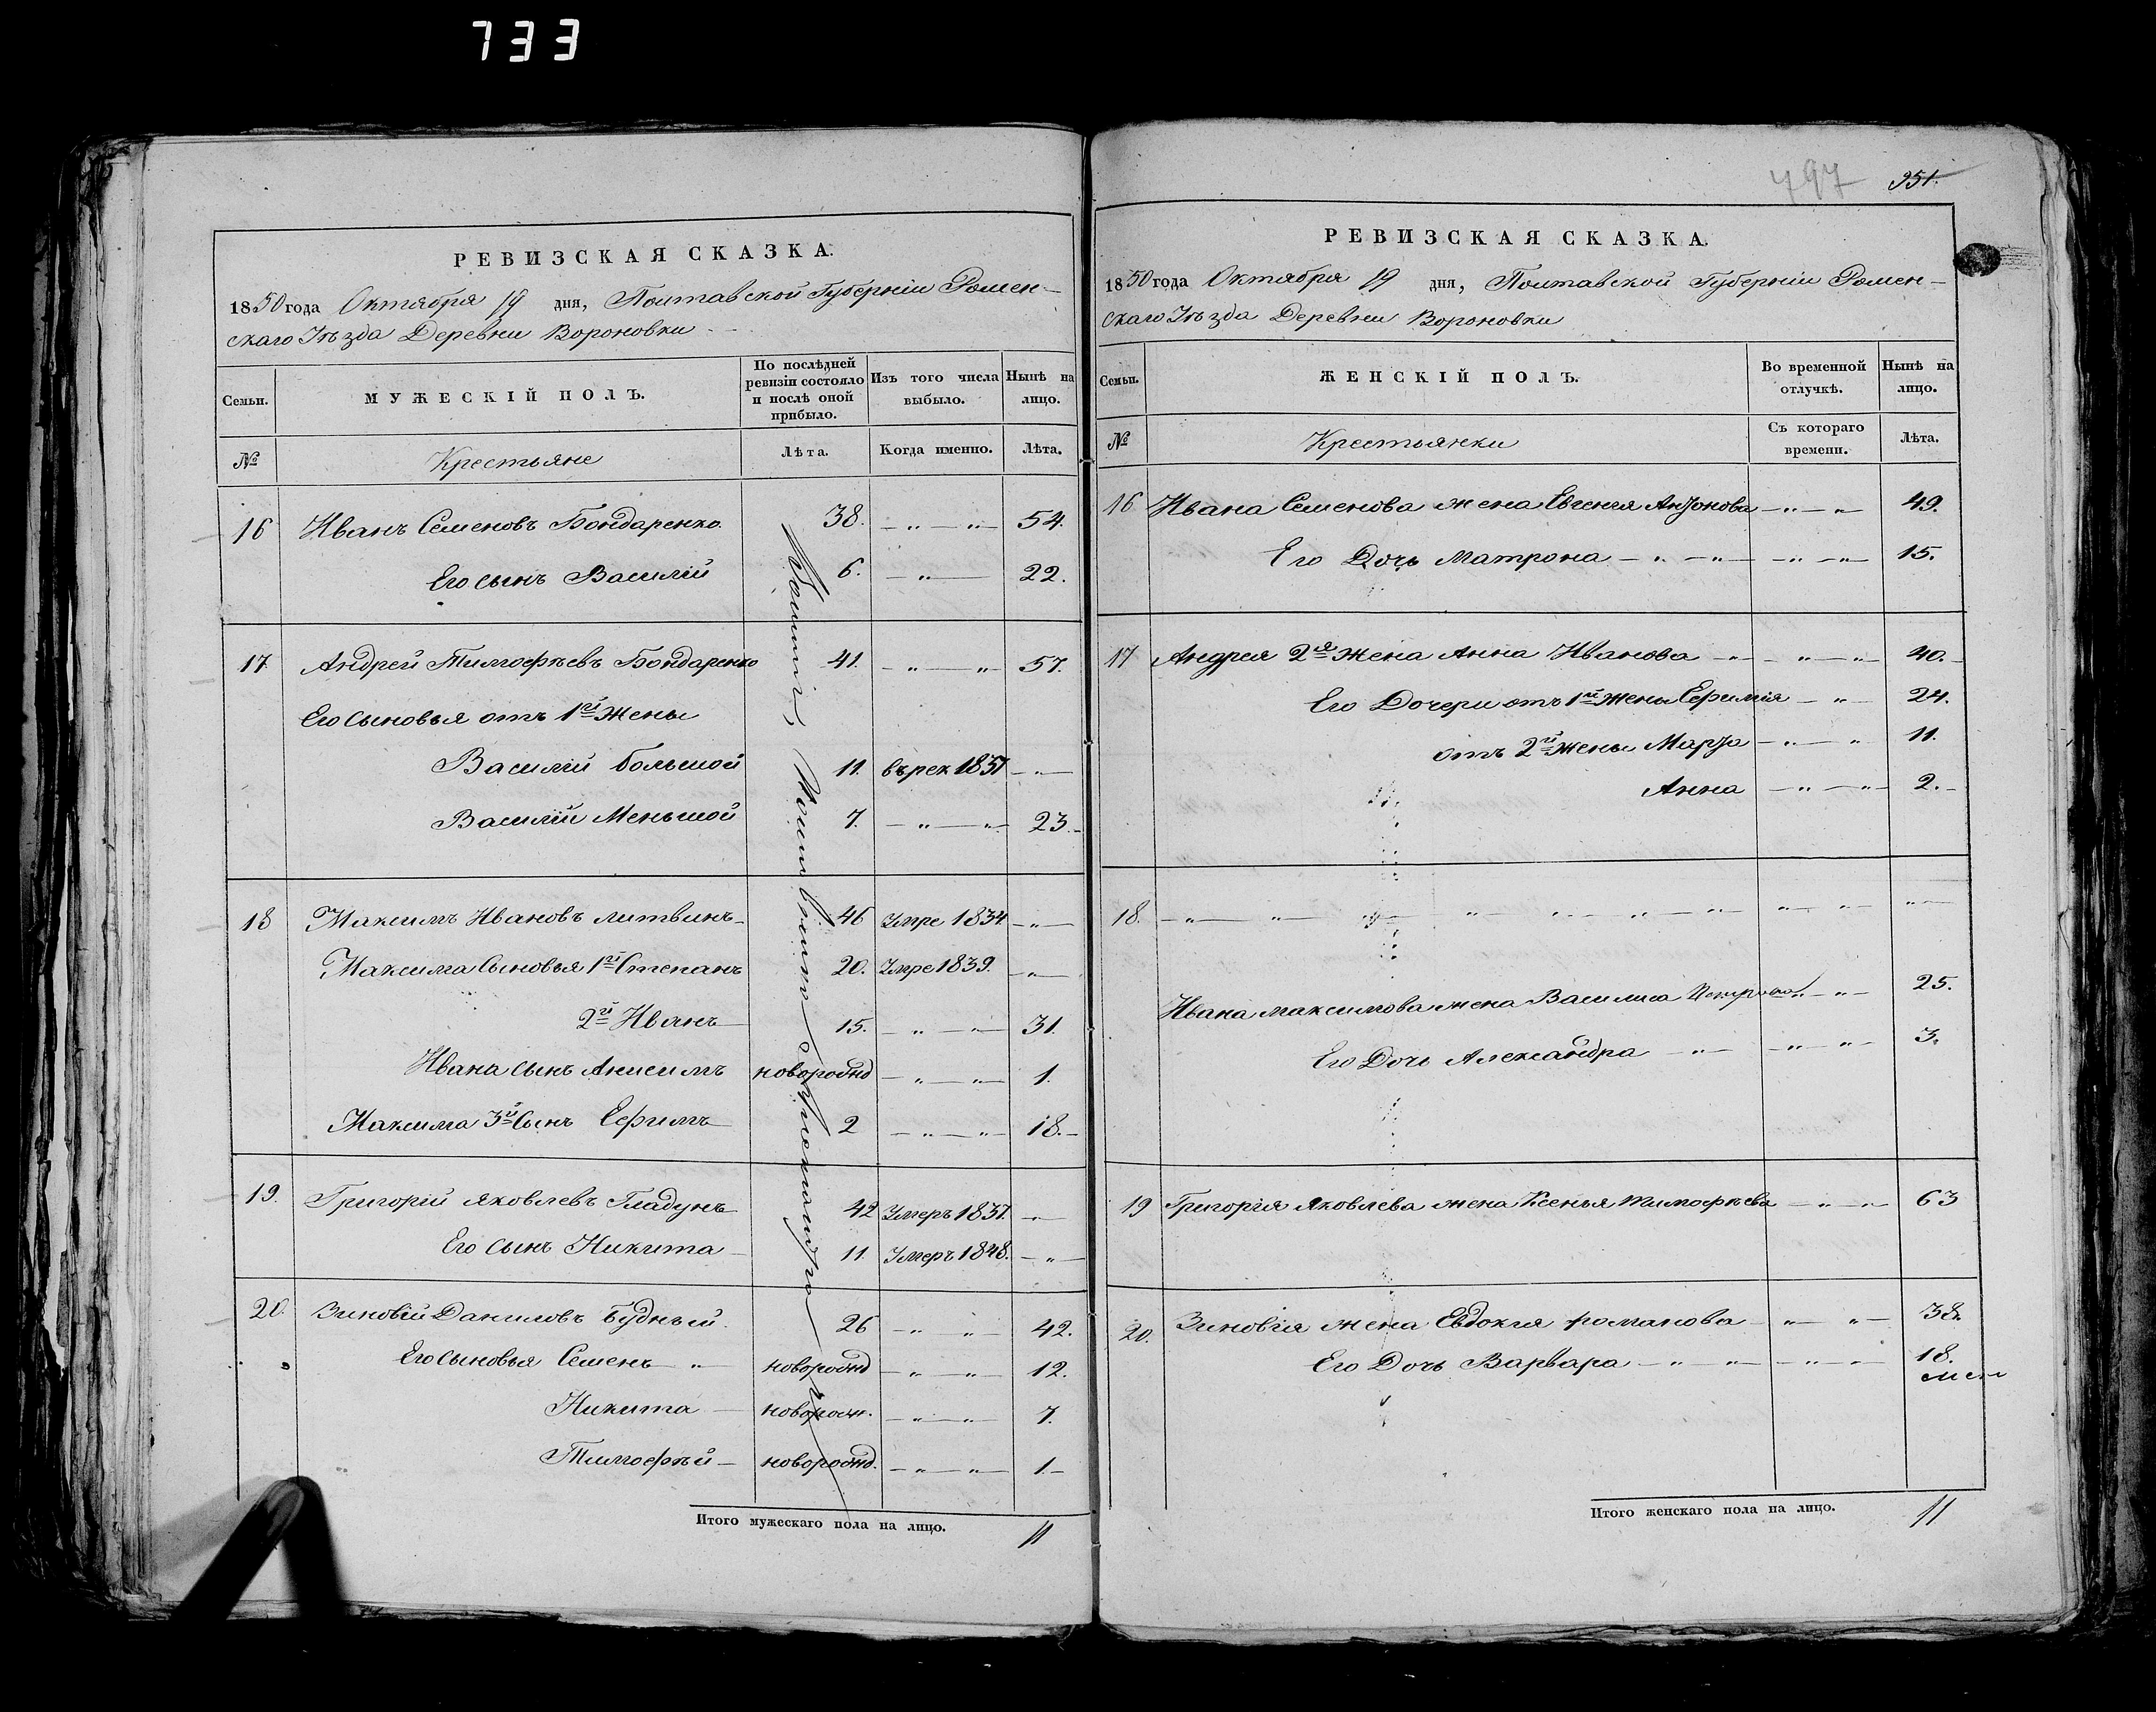 733
РЕВИЗСКАЯ СКАЗКА.
1850 года Октября 19 дня, Полтавской Губерніи Ромен-
скаго Уѣзда Деревни Вороновки
Семьи.
МУЖЕСКІЙ ПОЛЪ.
По послѣдней ревизіи состояло и послѣ оной прибыло.
Изъ того числа выбыло.
Нынѣ на лицо.
№ Крестьяне Лѣта. Когда именно. Лѣта.
16 Иванъ Семеновъ Бондаренко. 38. — „ — „ — 54.
Его сынъ Василій 6. — „ — 22.
17 Андрей Тимофѣевъ Бондаренко 41. — „ — „ — 57.
Его сыновья отъ 1й Жены
Василій большой 11. въ рек 1837 — „ —
Василій Меньшой 7. — „ — „ — 23.
18 Максимъ Ивановъ Литвинъ 46 Умре 1834. — „ —
Максима Сыновья 1й Степанъ 20. Умре 1839. — „ —
2й Иванъ 15. — „ — „ — 31.
Ивана сынъ Анисимъ новорожд — „ — „ — 1.
Максима 3й Сынъ Ефимъ 2 — „ — „ — 18.
19. Григорій Яковлевъ Гладунъ 42 Умеръ 1837. — „ —
Его сынъ Никита 11. Умеръ 1848. — „ —
20. Зиновій Даниловъ Будный. 26 — „ — „ — 42.
Его сыновья Семенъ — „ новорожд — „ — „ — 12.
Никита — новорож. — „ — „ — 7.
Тимофѣй — новорожд. — „ — „ — 1.
Итого мужескаго пола на лицо. 11
797 951.
РЕВИЗСКАЯ СКАЗКА.
1850 года Октября 19 дня, Полтавской Губерніи Ромен-
скаго Уѣзда Деревни Вороновки
Семьи.
ЖЕНСКІЙ ПОЛЪ.
Во временной отлучкѣ.
Нынѣ на лицо.
№ Крестьянки Съ котораго времени. Лѣта.
16 Ивана Семенова жена Евгенія Антонова — „ — „ — 49.
Его Дочь Матрона — „ — „ — „ — „ — 15.
17 Андрея 2я Жена Анна Иванова — „ — „ — „ — 40.
Его Дочери отъ 1й Жены Ефимія — „ — 24.
отъ 2й Жены Марѳа — „ — „ 11.
Анна — „ — „ — 2.
18. — „ — „ — „ — „ — „ — „ — „ — „ — „ — „ —
Ивана Максимова жена Василиса — „ — 25.
Его Дочь Александра — „ — „ — „ — 3.
19 Григорія Яковлева жена Ксенья Тимофѣева — „ — „ — 63
20. Зиновія жена Евдокія романова — „ — „ — 38.
Его Дочь Варвара — „ — „ — „ — „ — 18.
Итого женскаго пола на лицо. 11